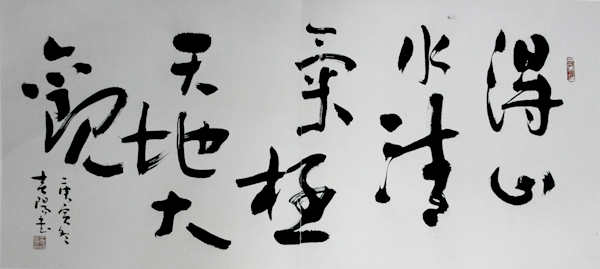 得山
水清
氣極
天地大
觀
庚寅冬